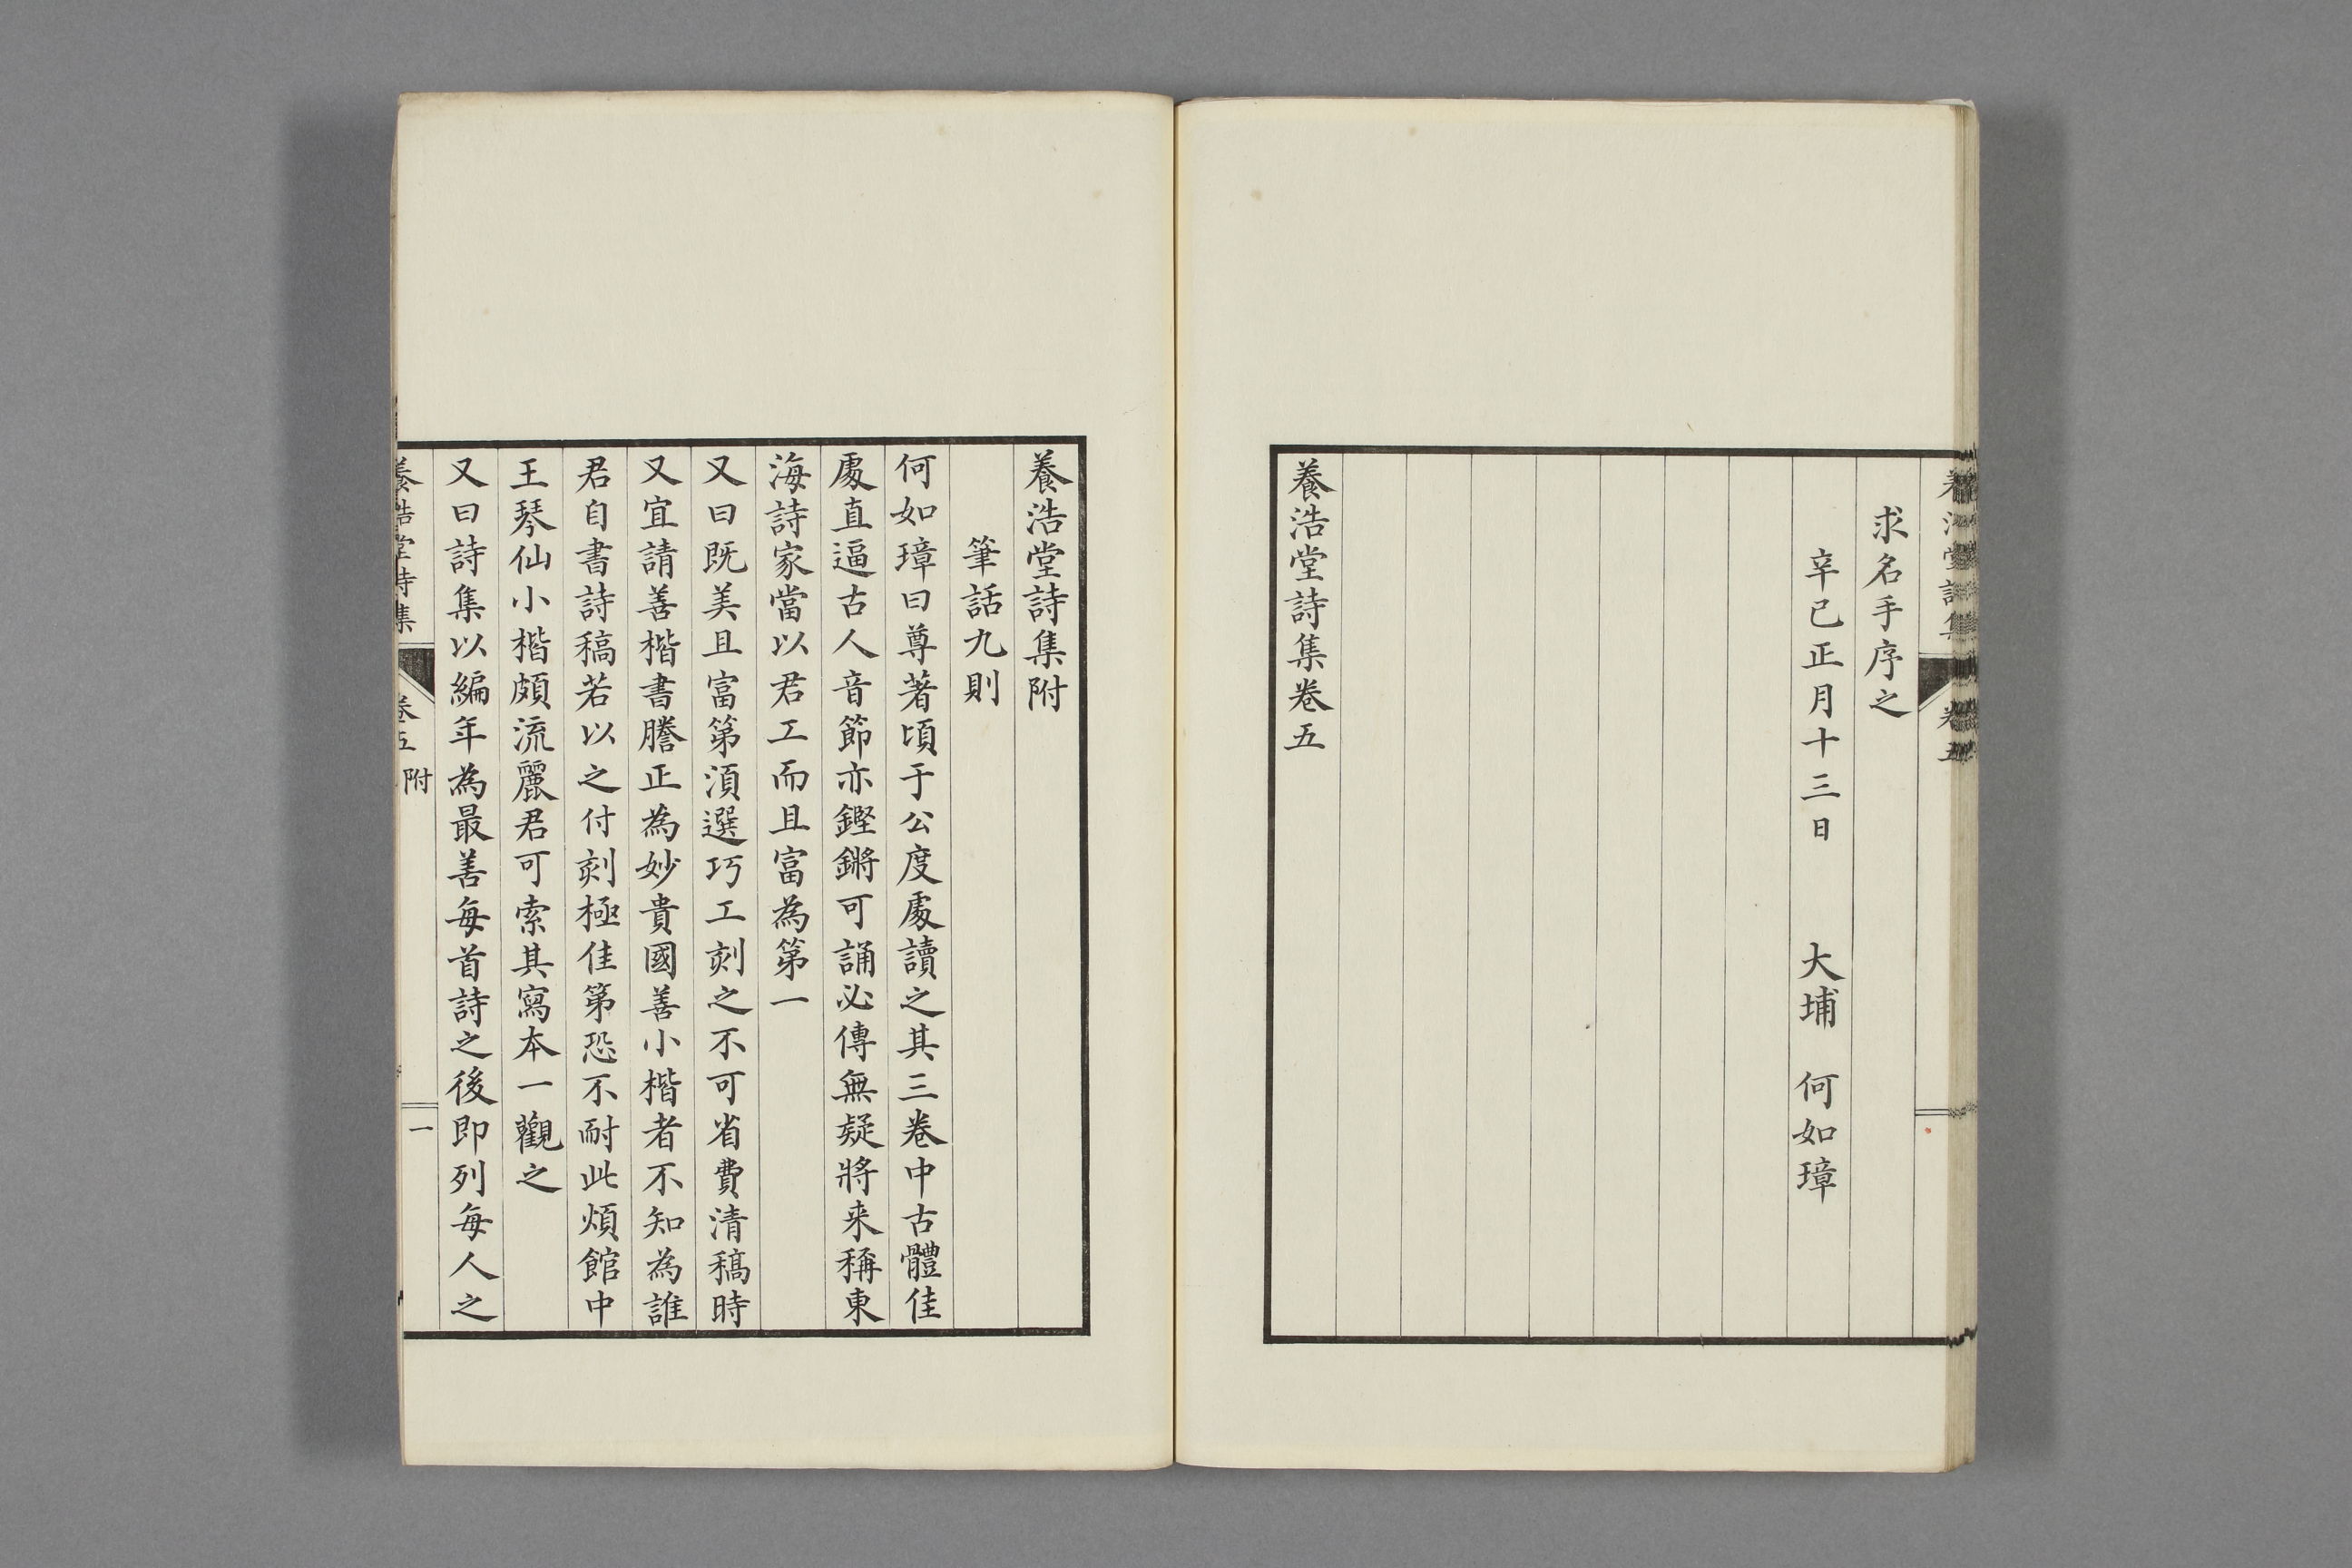 求名手序之
辛巳正月十三日　大埔　何如璋
養浩堂詩集卷五
養浩堂詩集附
筆話九則
何如璋曰尊著頃于公度處讀之其三卷中古體佳
處直逼古人音節亦鏗鏘可誦必傳無疑將来稱東
海詩家當以君工而且富為第一
又曰既美且富第湏選巧工刻之不可省費清稿時
又宜請善楷書謄正為妙貴國善小楷者不知為誰
君自書詩稿若以之付刻極佳第恐不耐此煩館中
王琴仙小楷頗流麗君可索其寫本一觀之
又曰詩集以編年為最善每首詩之後即列每人之
養浩堂詩集　卷五　附　一